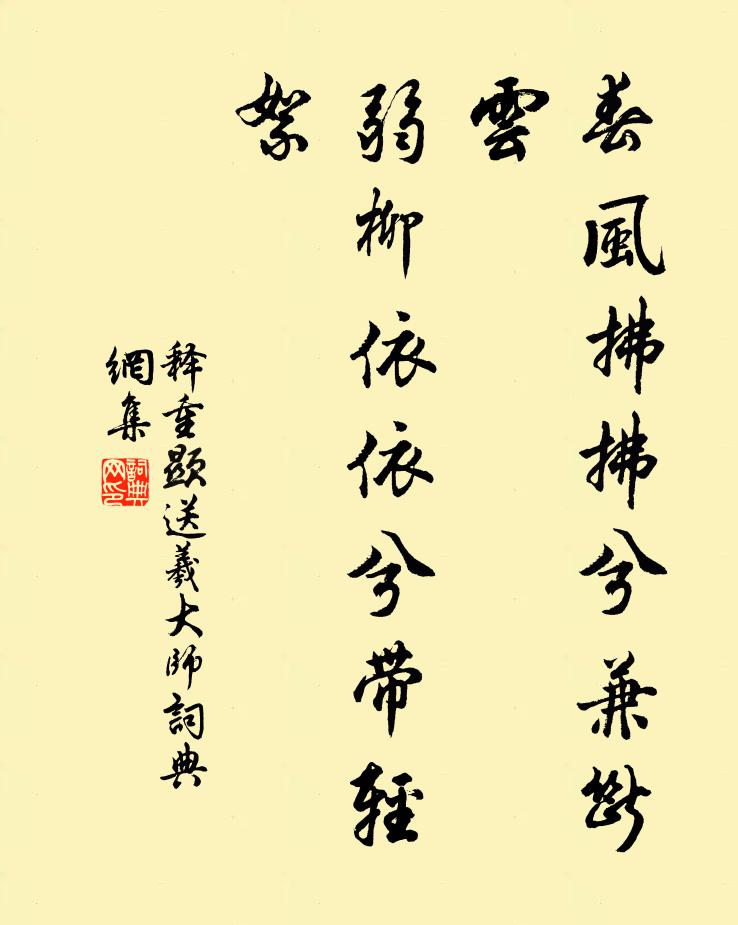 春風拂拂兮兼斷
雲
弱柳依依兮帶輕
絮
释重顯送羲大師詞典
網集
詞典網印